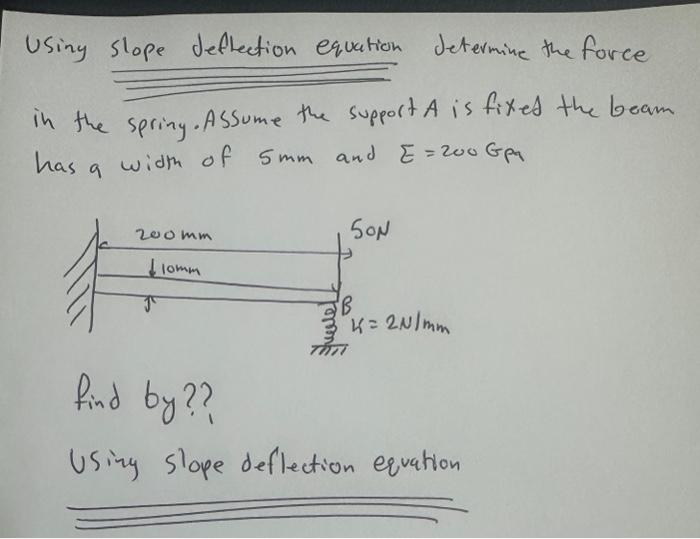 Using slope deflection equation determine the force
in the spring. Assume the support A is fixed the beam
has a width of 5mm and E = 200 Gpa
200mm
50N
10mm
B
K = 2N/mm
find by??
Using slope deflection equation